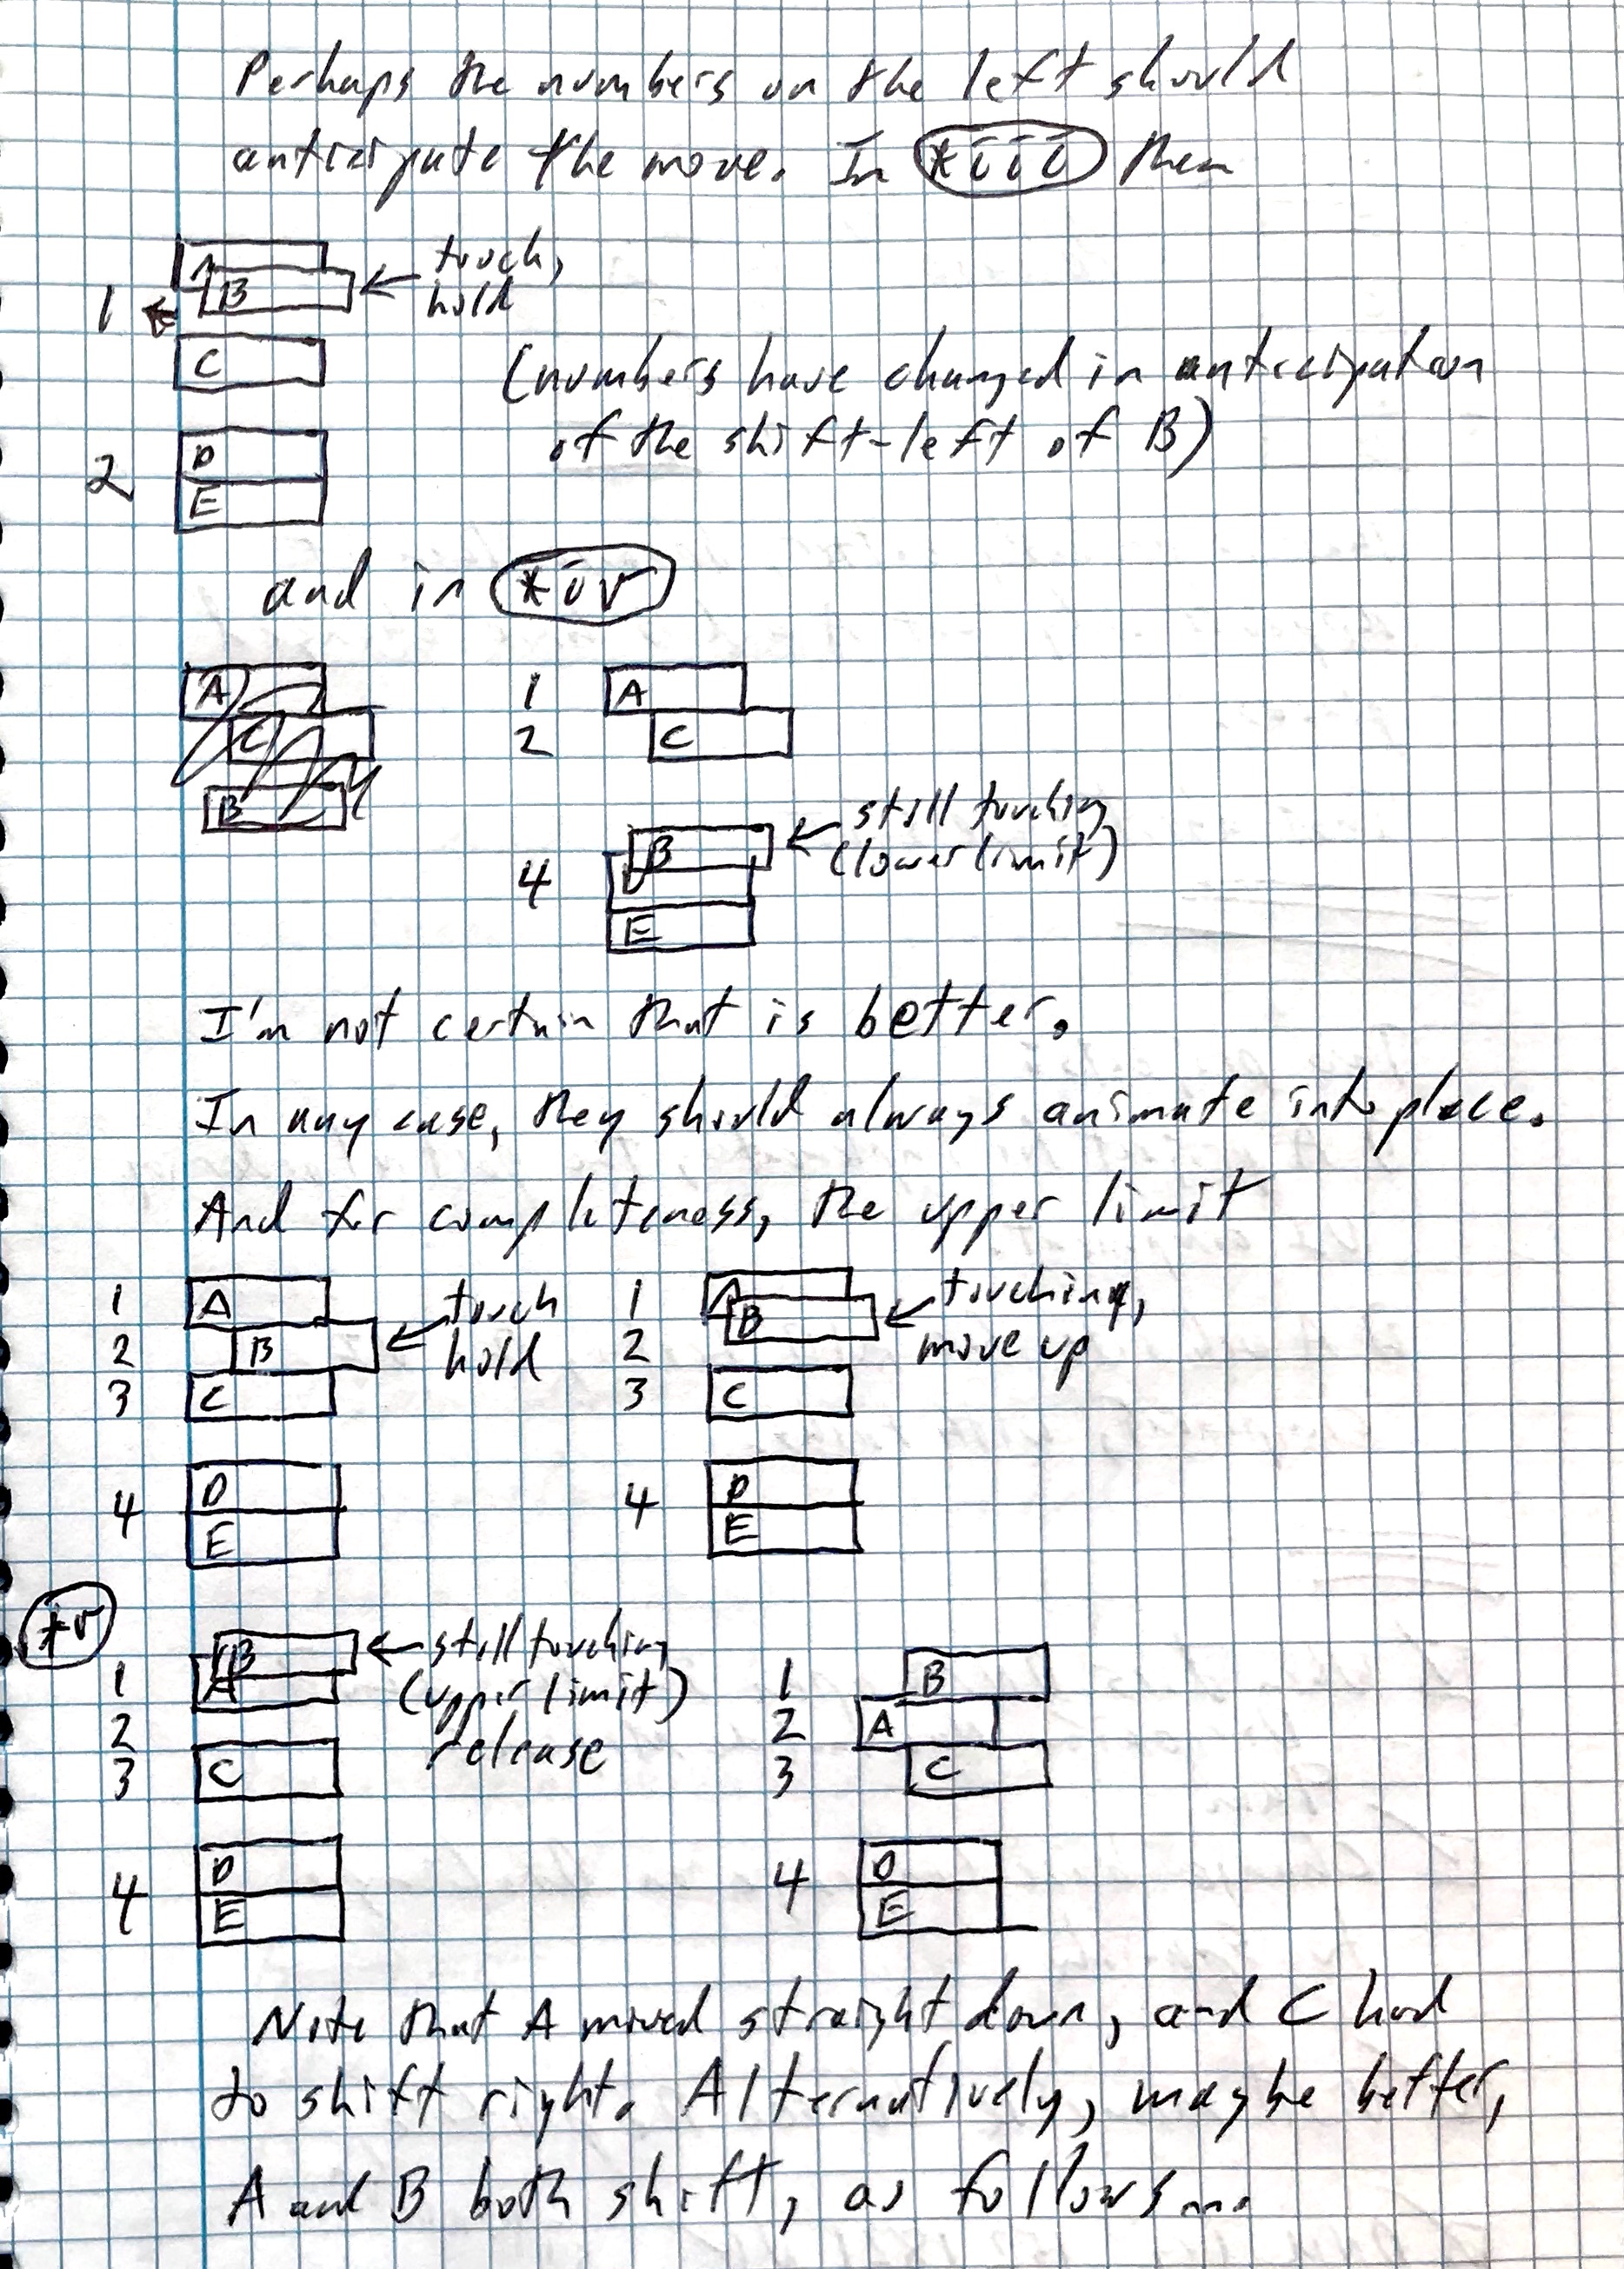 Perhaps the numbers on the left should
anticipate the move. In *iii then
A
B
touch,
hold
1
C
(numbers have changed in anticipation
of the shift-left of B)
2
D
E
and in *iv
A
C
B
1 A
2 C
B
still touching
(lower limit)
4 D
E
I'm not certain that is better.
In any case, they should always animate into place.
And for completeness, the upper limit
1 A
2 B
touch
hold
3 C
4 D
E
1 A
B
touching,
move up
2
3 C
4 D
E
*v
B
still touching
(upper limit)
release
1 A
2
3 C
4 D
E
1 B
2 A
3 C
4 D
E
Note that A moved straight down, and C had
to shift right. Alternatively, maybe better,
A and B both shift, as follows...